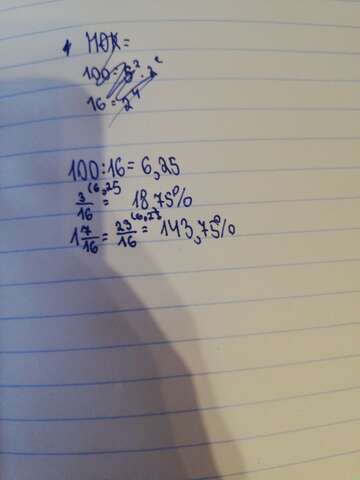 НОК=
100=5².2²
16=2⁴
100:16=6,25
3/16 (6,25 = 18.75%
1 7/16 = 23/16 (6,25 = 143,75%